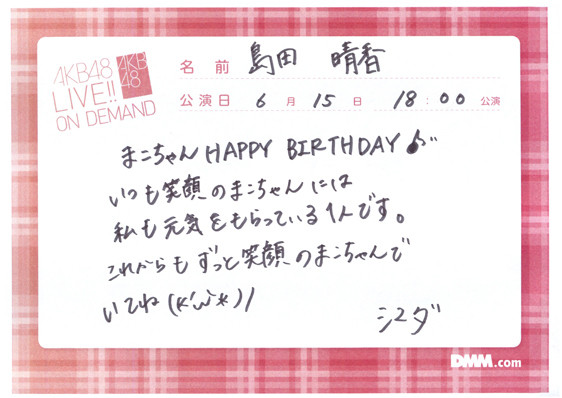 AKB48
LIVE!!
ON DEMAND
AKB
48
名前 島田 晴香
公演日 6月15日 18:00公演
まこちゃん HAPPY BIRTHDAY♪
いつも笑顔のまこちゃんには
私も元気をもらっている1人です。
これからもずっと笑顔のまこちゃんで
いてね
シマダ
DMM.com